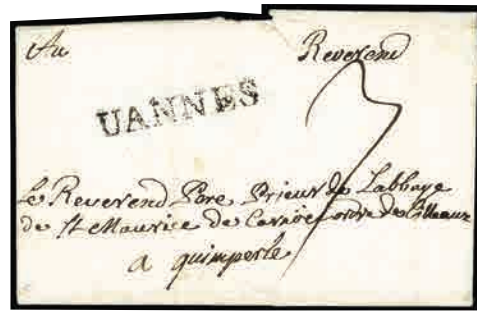 Au Reverend
UANNES
3
Le Reverend Pere Prieur de Labbaye
de St Maurice de Carnoet ordre de Citeaux
a quimperle